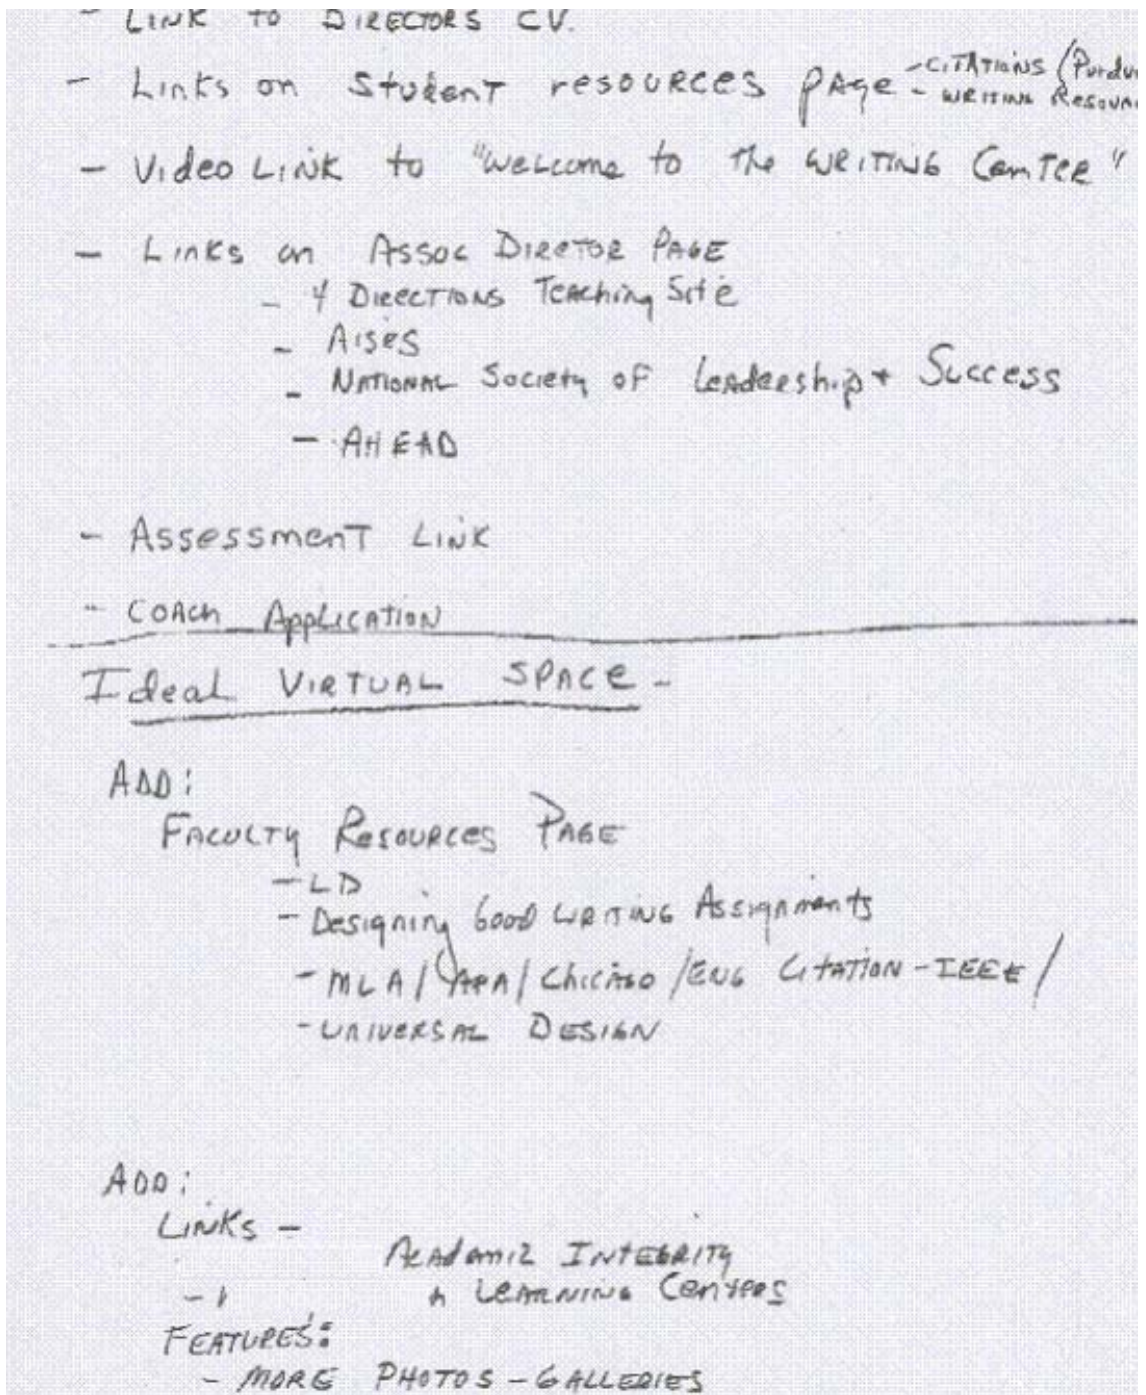 - LINK TO DIRECTORS CV.
- Links on Student resources page - CITATIONS (Purdu
- WRITING Resour
- Video LINK to "Welcome to the WRITING CenTER"
- Links on Assoc DIRECTOR PAGE
- 4 DIRECTIONS Teaching Site
- AISES
- NATIONAL Society OF Leadership + Success
- AHEAD
- Assessment LINK
- COACH Application
Ideal VIRTUAL SPACE -
ADD:
FACULTY Resources PAGE
- LD
- Designing Good WRITING Assignments
- MLA/APA/Chicago/ENG CITATION-IEEE/
- UNIVERSAL DESIGN
ADD:
Links -
Academic INTEGRITY
LEARNING Centers
FEATURES:
- MORE PHOTOS - GALLERIES